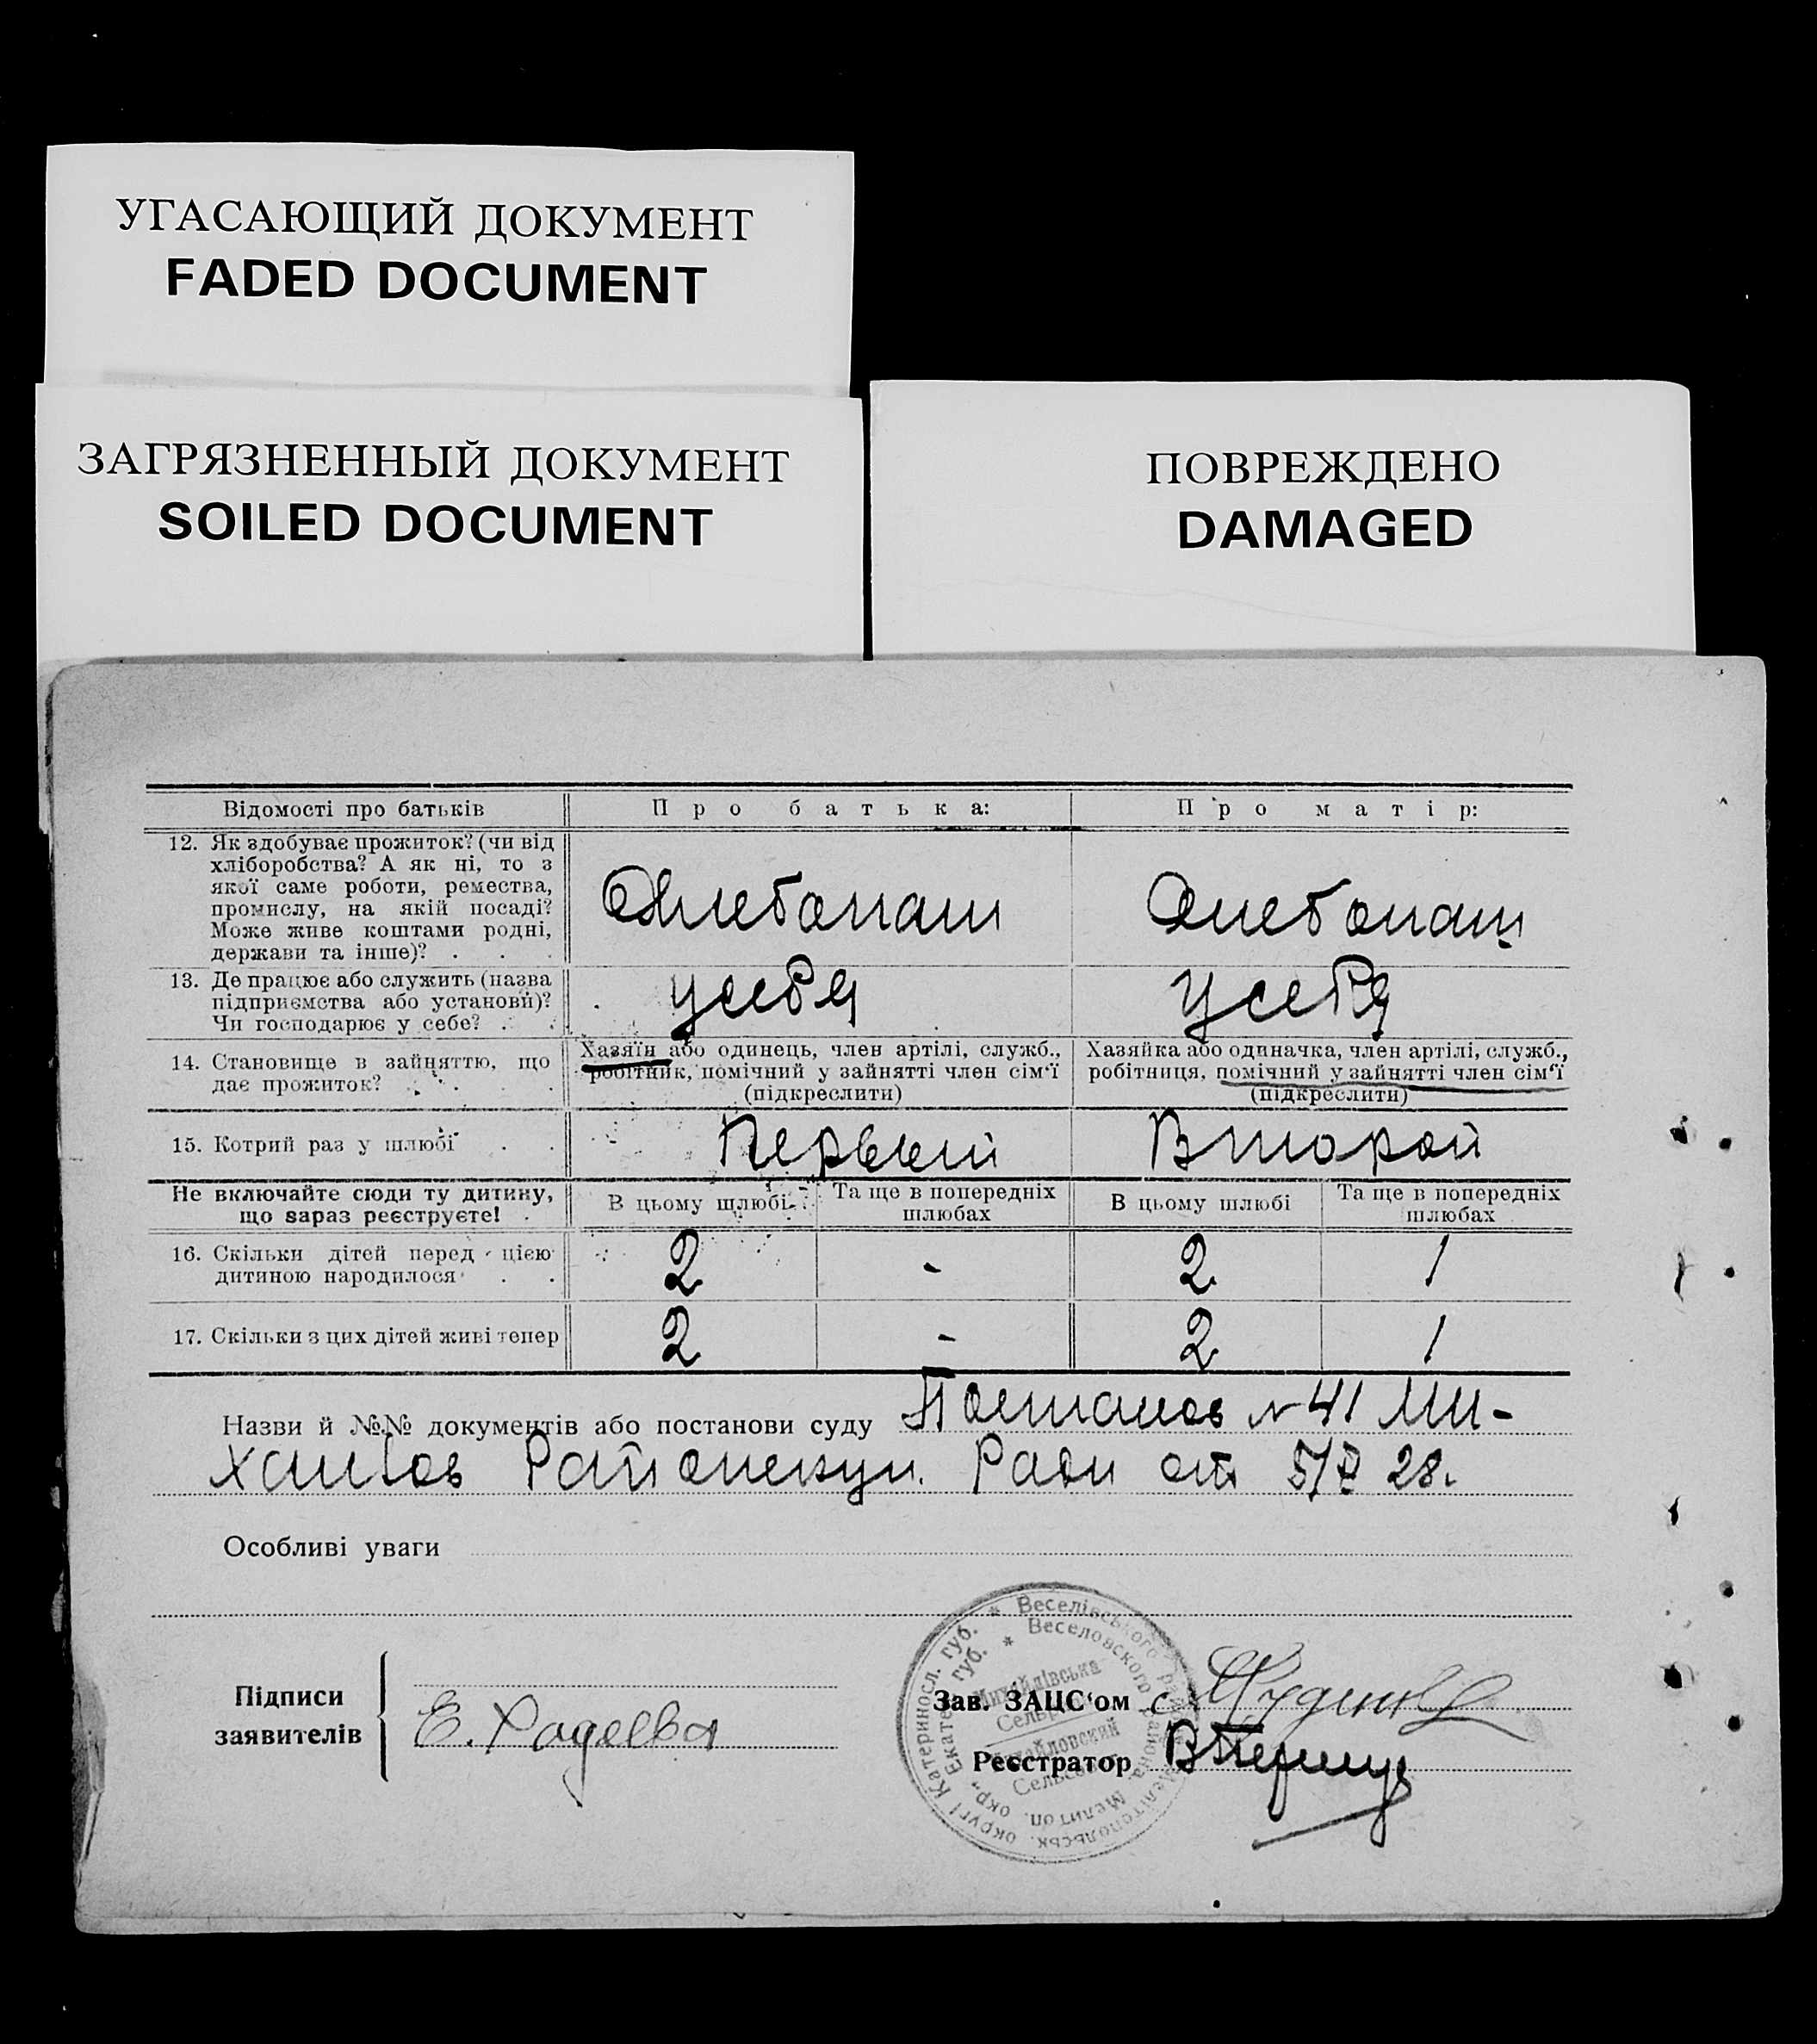 УГАСАЮЩИЙ ДОКУМЕНТ
FADED DOCUMENT
ЗАГРЯЗНЕННЫЙ ДОКУМЕНТ
SOILED DOCUMENT
ПОВРЕЖДЕНО
DAMAGED
Відомості про батьків
Про батька:
Про матір:
12. Як здобуває прожиток? (чи від
хліборобства? А як ні, то з
якої саме роботи, ремества,
промислу, на якій посаді?
Може живе коштами родні,
держави та інше)? . . .
Хлебопаш
Хлебопаш
13. Де працює або служить (назва
підприємства або установи)?
Чи господарює у себе? . .
у себя
у себя
14. Становище в зайняттю, що
дає прожиток? . . . .
Хазяїн або одинець, член артілі, служб.,
робітник, помічний у зайнятті член сім'ї
(підкреслити)
Хазяйка або одиначка, член артілі, служб.,
робітниця, помічний у зайнятті член сім'ї
(підкреслити)
15. Котрий раз у шлюбі . .
Первый
Второй
Не включайте сюди ту дитину,
що зараз реєструєте! .
В цьому шлюбі
Та ще в попередніх
шлюбах
В цьому шлюбі
Та ще в попередніх
шлюбах
16. Скільки дітей перед цією
дитиною народилося . .
2 - 2 1
17. Скільки з цих дітей живі тепер
2 - 2 1
Назви й №№ документів або постанови суду Постанов №41 Ми-
хайлов Ради от 28.
Особливі уваги
Підписи
заявителів
Е. Хадеева
Зав. ЗАЦС'ом
Реєстратор
* Веселівського району Мелітопольськ. округі Катериносл. губ.
* Веселовского района Мелитоп. окр., Екатер. губ.
Михайлівська
Сельрада
Михайловский
Сельсовет